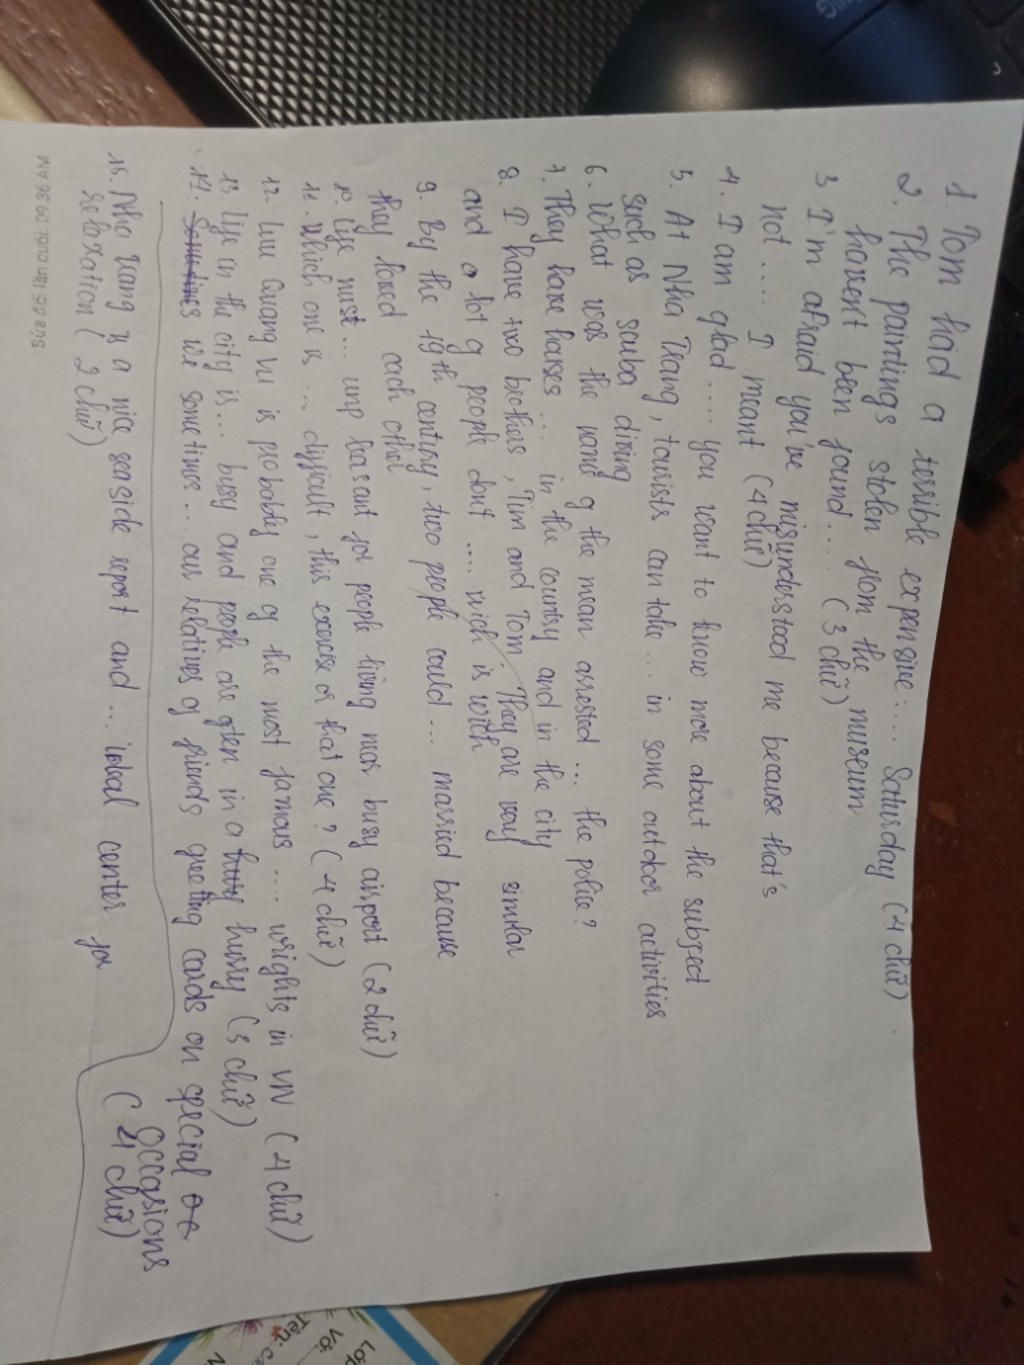 1. Tom had a terrible expensive.... Saturday (4 chữ)
2. The paintings stolen from the museum
havent been found.... (3 chữ)
3 I'm afraid you've misunderstood me because that's
not.... I meant (4 chữ)
4. I am glad.... you want to know more about the subject
5. At Nha Trang, tourists can take... in some outdoor activities
such as scuba diving
6. What was the name of the mean arrested... the police?
7. They have houses... in the country and in the city
8. I have two brothers, Tim and Tom. They are very similar
and a lot of people don't.... wich is wich
9. By the 19th century, two people could... married because
they loved each other
10. Life must... unp leasant for people living near busy airport (2 chữ)
11. Which one is... difficult, this exercise or that one? (4 chữ)
12. Luu Quang Vu is probably one of the most famous.... wrights in VN (4 chữ)
13 Life in the city is... busy and people are often in a hurry (3 chữ)
14. Sometimes we sometimes... our relatives of friends greeting cards on special oc
occasions
(4 chữ)
15. Nha trang is a nice seaside resort and... ideal center for
relaxation (2 chữ)